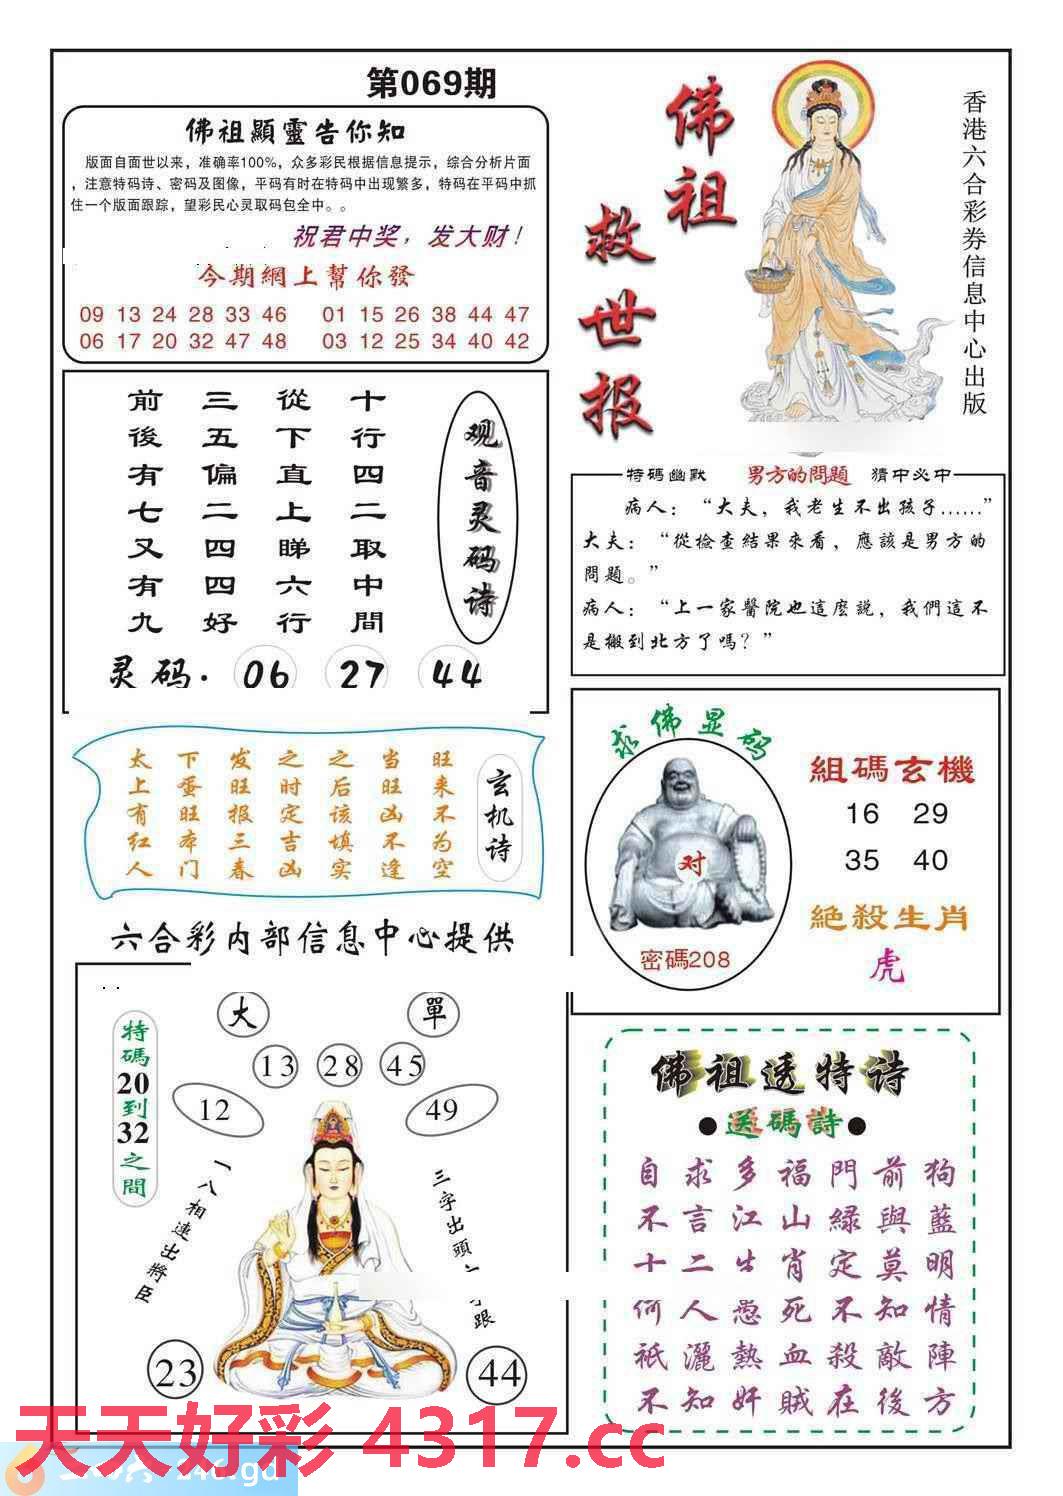 第069期
佛祖顯靈告你知
版面自面世以来，准确率100%，众多彩民根据信息提示，综合分析片面
，注意特码诗、密码及图像，平码有时在特码中出现繁多，特码在平码中抓
住一个版面跟踪，望彩民心灵取码包全中。。
祝君中奖，发大财！
今期網上幫你發
09 13 24 28 33 46 01 15 26 38 44 47
06 17 20 32 47 48 03 12 25 34 40 42
佛祖
救世报
香港六合彩券信息中心出版
观音灵码诗
十行四二取中間
從下直上睇六行
三五偏二四四好
前後有七又有九
灵码. 06 27 44
特碼幽默 男方的問題 猜中必中
病人：“大夫，我老生不出孩子......”
大夫：“從檢查結果來看，應該是男方的
問題。”
病人：“上一家醫院也這麽説，我們這不
是搬到北方了嗎？”
玄机诗
旺来不为空
当旺凶不逢
之后该填实
之时定吉凶
发旺报三春
下蛋旺本门
太上有红人
求佛显码
对
密碼208
組碼玄機
16 29
35 40
絶殺生肖
虎
六合彩内部信息中心提供
特碼20到32之間
大 單
13 28 45
12 49
一八相連出將臣
三字出頭
跟
23 44
佛祖透特诗
●送碼詩●
自求多福門前狗
不言江山緑與藍
十二生肖定莫明
何人愚死不知情
祇灑熱血殺敵陣
不知奸賊在後方
天天好彩 4317.cc
246.gd